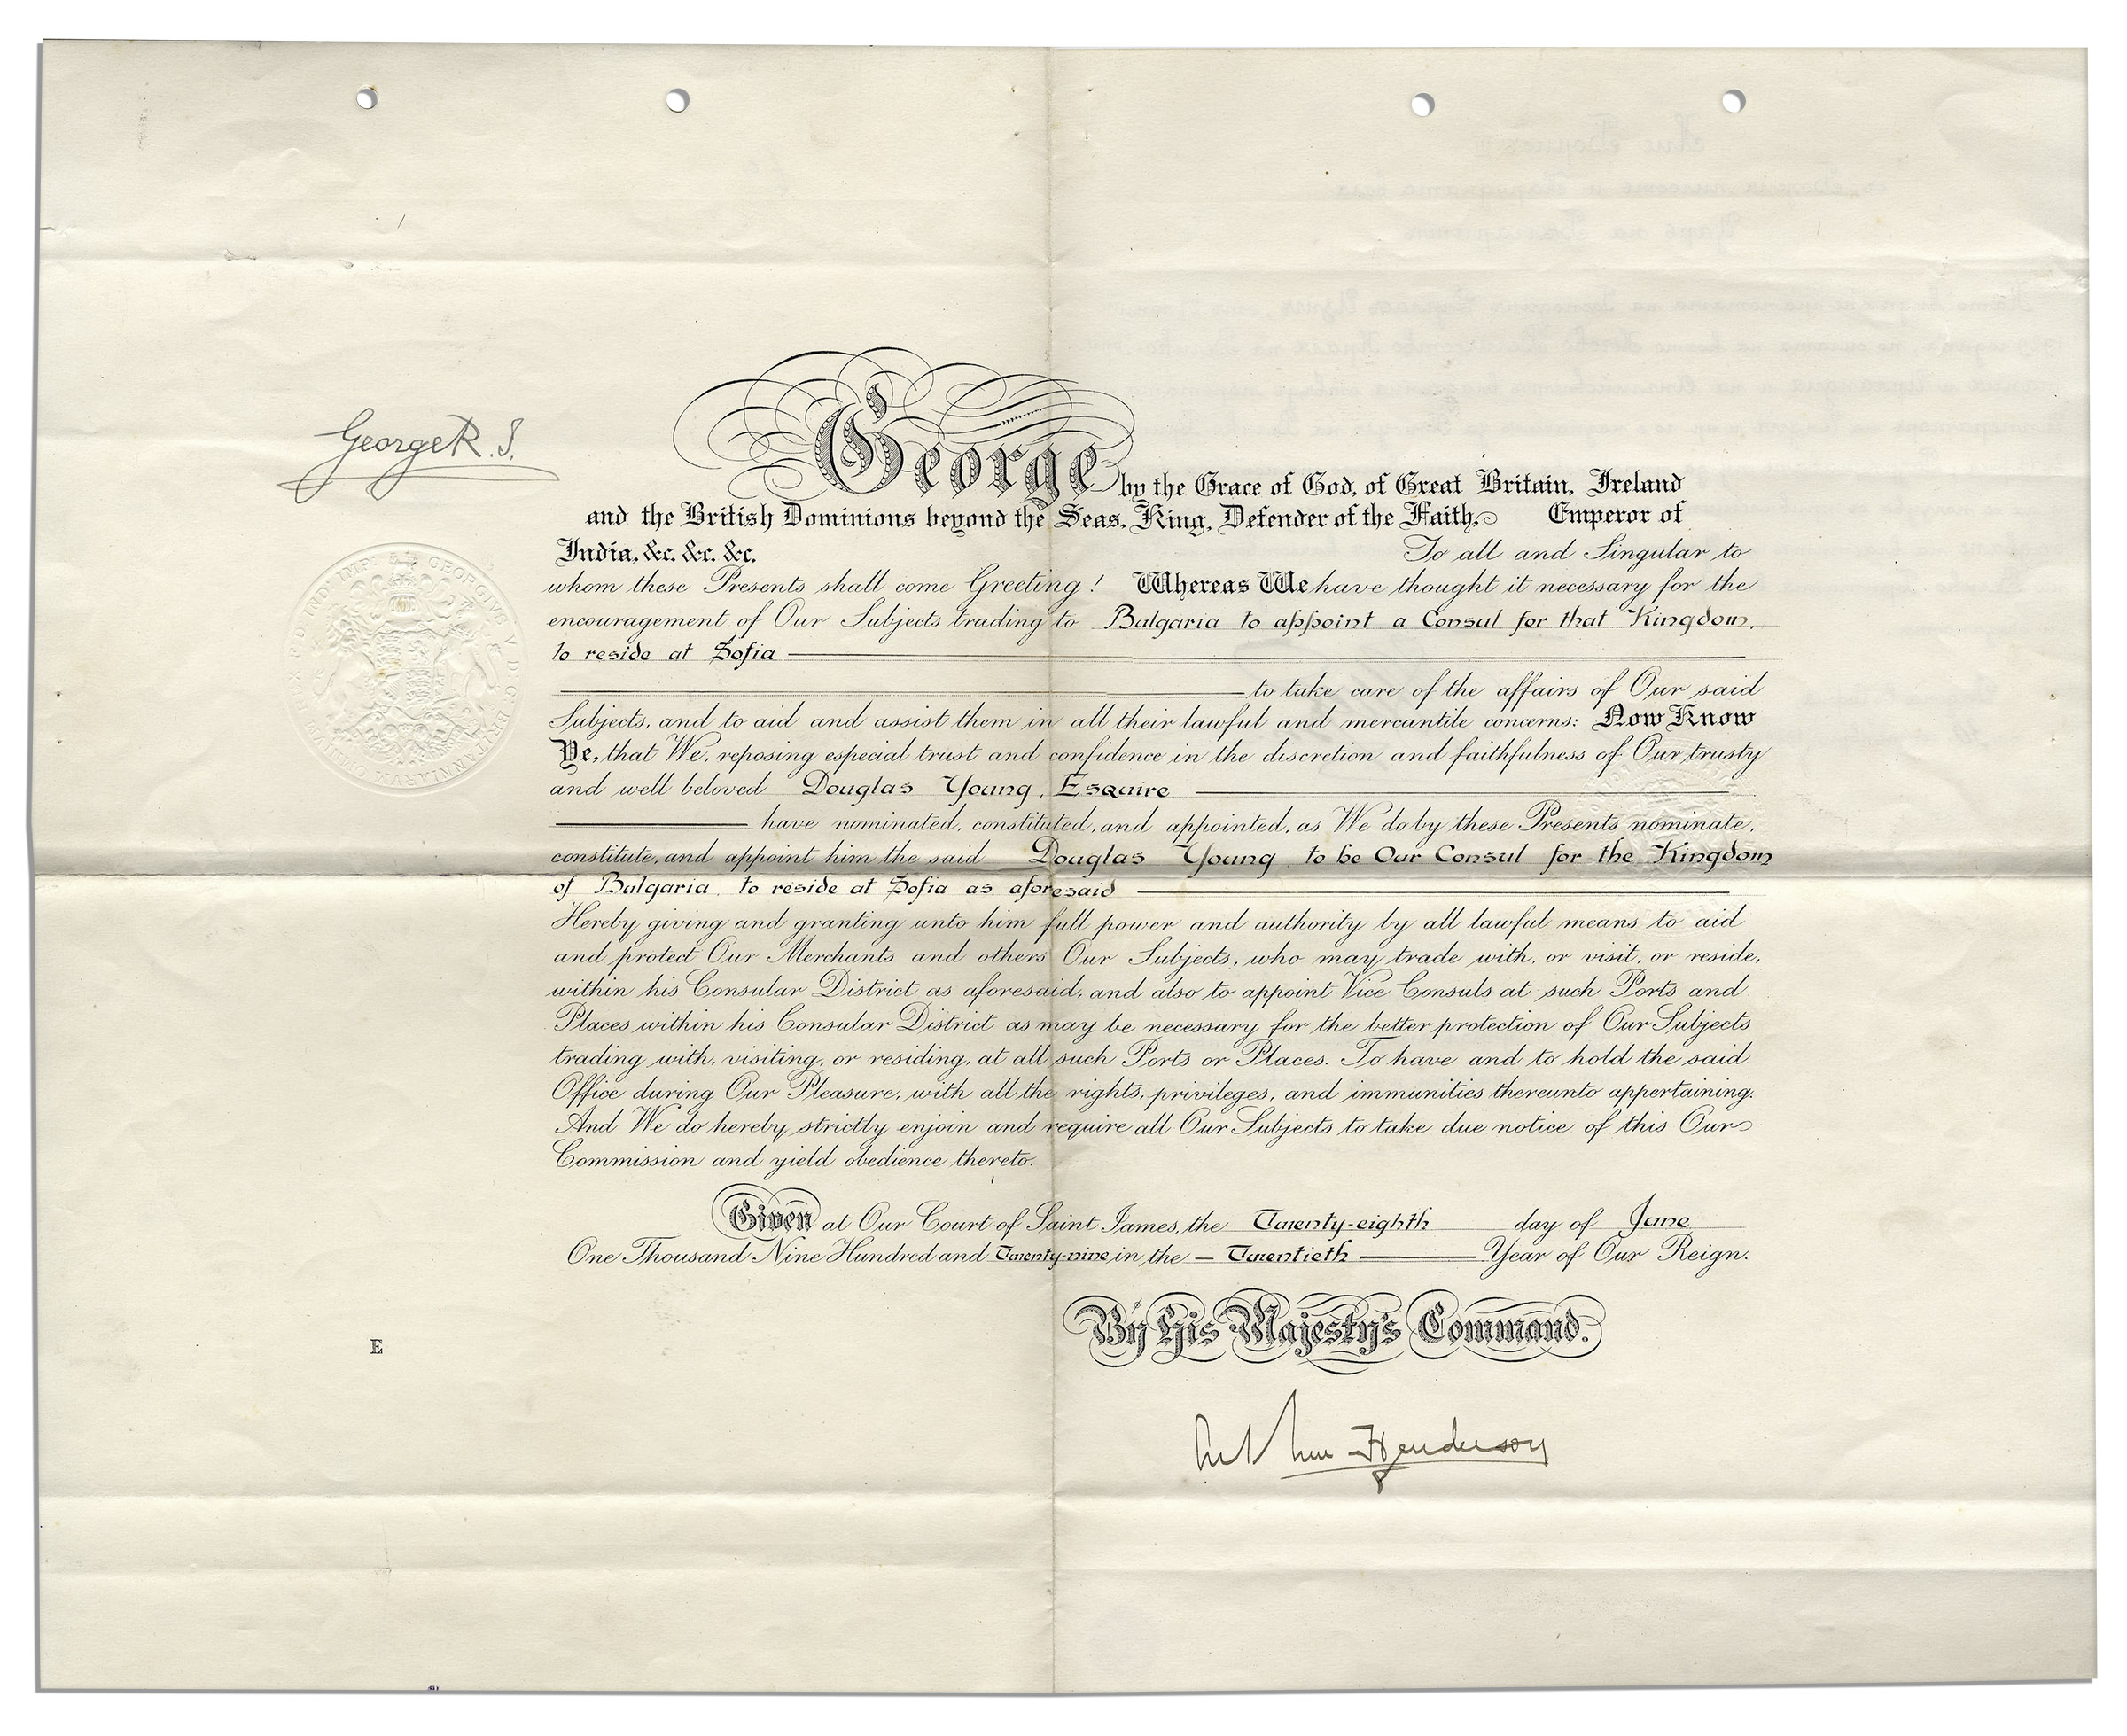 George R.I.
George by the Grace of God, of Great Britain, Ireland
and the British Dominions beyond the Seas, King, Defender of the Faith, Emperor of
India, &c. &c. &c. To all and Singular to
whom these Presents shall come Greeting! Whereas We have thought it necessary for the
encouragement of Our Subjects trading to Bulgaria to appoint a Consul for that Kingdom,
to reside at Sofia
to take care of the affairs of Our said
Subjects, and to aid and assist them in all their lawful and mercantile concerns: Now Know
Ye, that We, reposing especial trust and confidence in the discretion and faithfulness of Our trusty
and well beloved Douglas Young, Esquire
have nominated, constituted, and appointed, as We do by these Presents nominate,
constitute, and appoint him the said Douglas Young to be Our Consul for the Kingdom
of Bulgaria to reside at Sofia as aforesaid
Hereby giving and granting unto him full power and authority by all lawful means to aid
and protect Our Merchants and others Our Subjects, who may trade with, or visit, or reside,
within his Consular District as aforesaid, and also to appoint Vice Consuls at such Ports and
Places within his Consular District as may be necessary for the better protection of Our Subjects
trading with, visiting, or residing, at all such Ports or Places. To have and to hold the said
Office during Our Pleasure, with all the rights, privileges, and immunities thereunto appertaining.
And We do hereby strictly enjoin and require all Our Subjects to take due notice of this Our
Commission and yield obedience thereto.
Given at Our Court of Saint James, the Twenty-eighth day of June
One Thousand Nine Hundred and Twenty-nine in the — Twentieth Year of Our Reign.
By His Majesty's Command.
E
Arthur Henderson